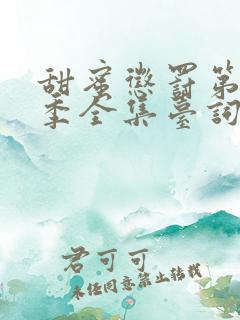 甜蜜懲罰第
季全集臺詞
君可可
未经同意禁止转载